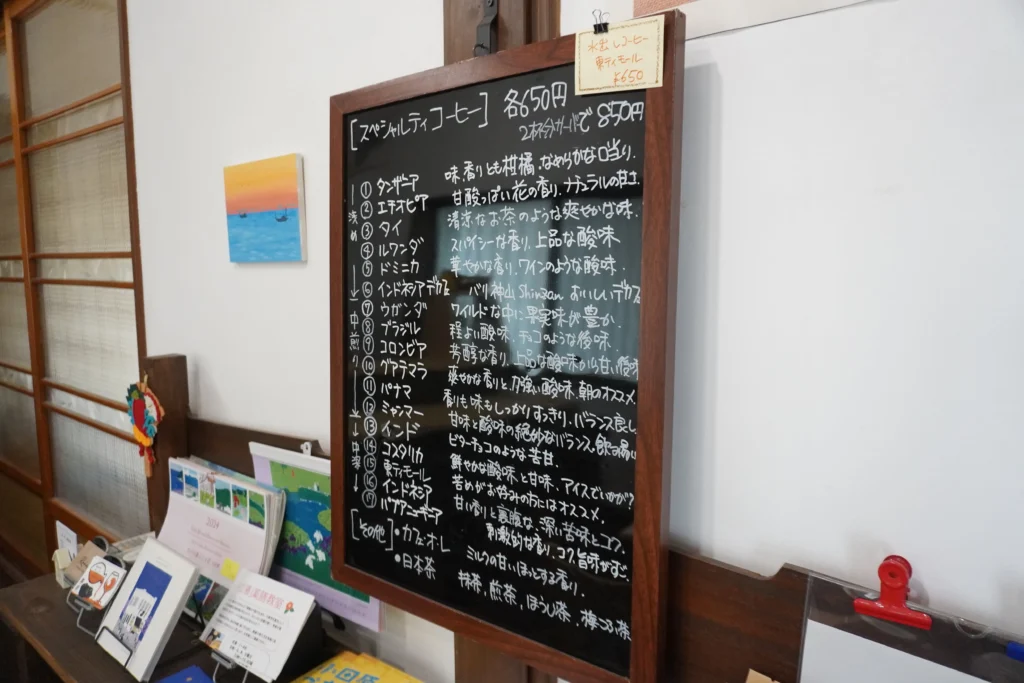 水出しコーヒー
東ティモール
¥650
[スペシャルティコーヒー] 各650円
2杯分 で 850円
浅め
① タンザニア 味、香りとも柑橘、なめらかな口当り.
② エチオピア 甘酸っぱい花の香り、ナチュラルの甘土.
③ タイ 清涼なお茶のような爽やかな味.
④ ルワンダ スパイシーな香り、上品な酸味
⑤ ドミニカ 華やかな香り、ワインのような酸味.
⑥ インドネシアデカフェ バリ神山 Shinzan おいしいデカフェ
中煎り
⑦ ウガンダ ワイルドな中に果実味が豊か.
⑧ ブラジル 程よい酸味、チョコのような後味.
⑨ コロンビア 芳醇な香り、上品な酸味から甘い後味
⑩ グアテマラ 爽やかな香りと、力強い酸味、朝のオススメ.
⑪ パナマ 香りも味もしっかりすっきり、バランス良し
⑫ ミャンマー 甘味と酸味の絶妙なバランス、飲み易い
中深
⑬ インド ビターチョコのような苦甘.
⑭ コスタリカ 鮮やかな酸味と甘味、アイスでいかが?
⑮ 東ティモール 苦めがお好みの方にはオススメ.
⑯ インドネシア 甘い香りと裏腹な、深い苦味とコク.
⑰ パプアニューギニア 刺激的な香り、コク、旨味がすご.
[その他] ・カフェ・オ・レ ミルクの甘いほっとする香り.
・日本茶 抹茶、煎茶、ほうじ茶、梅こぶ茶
2024
小田原